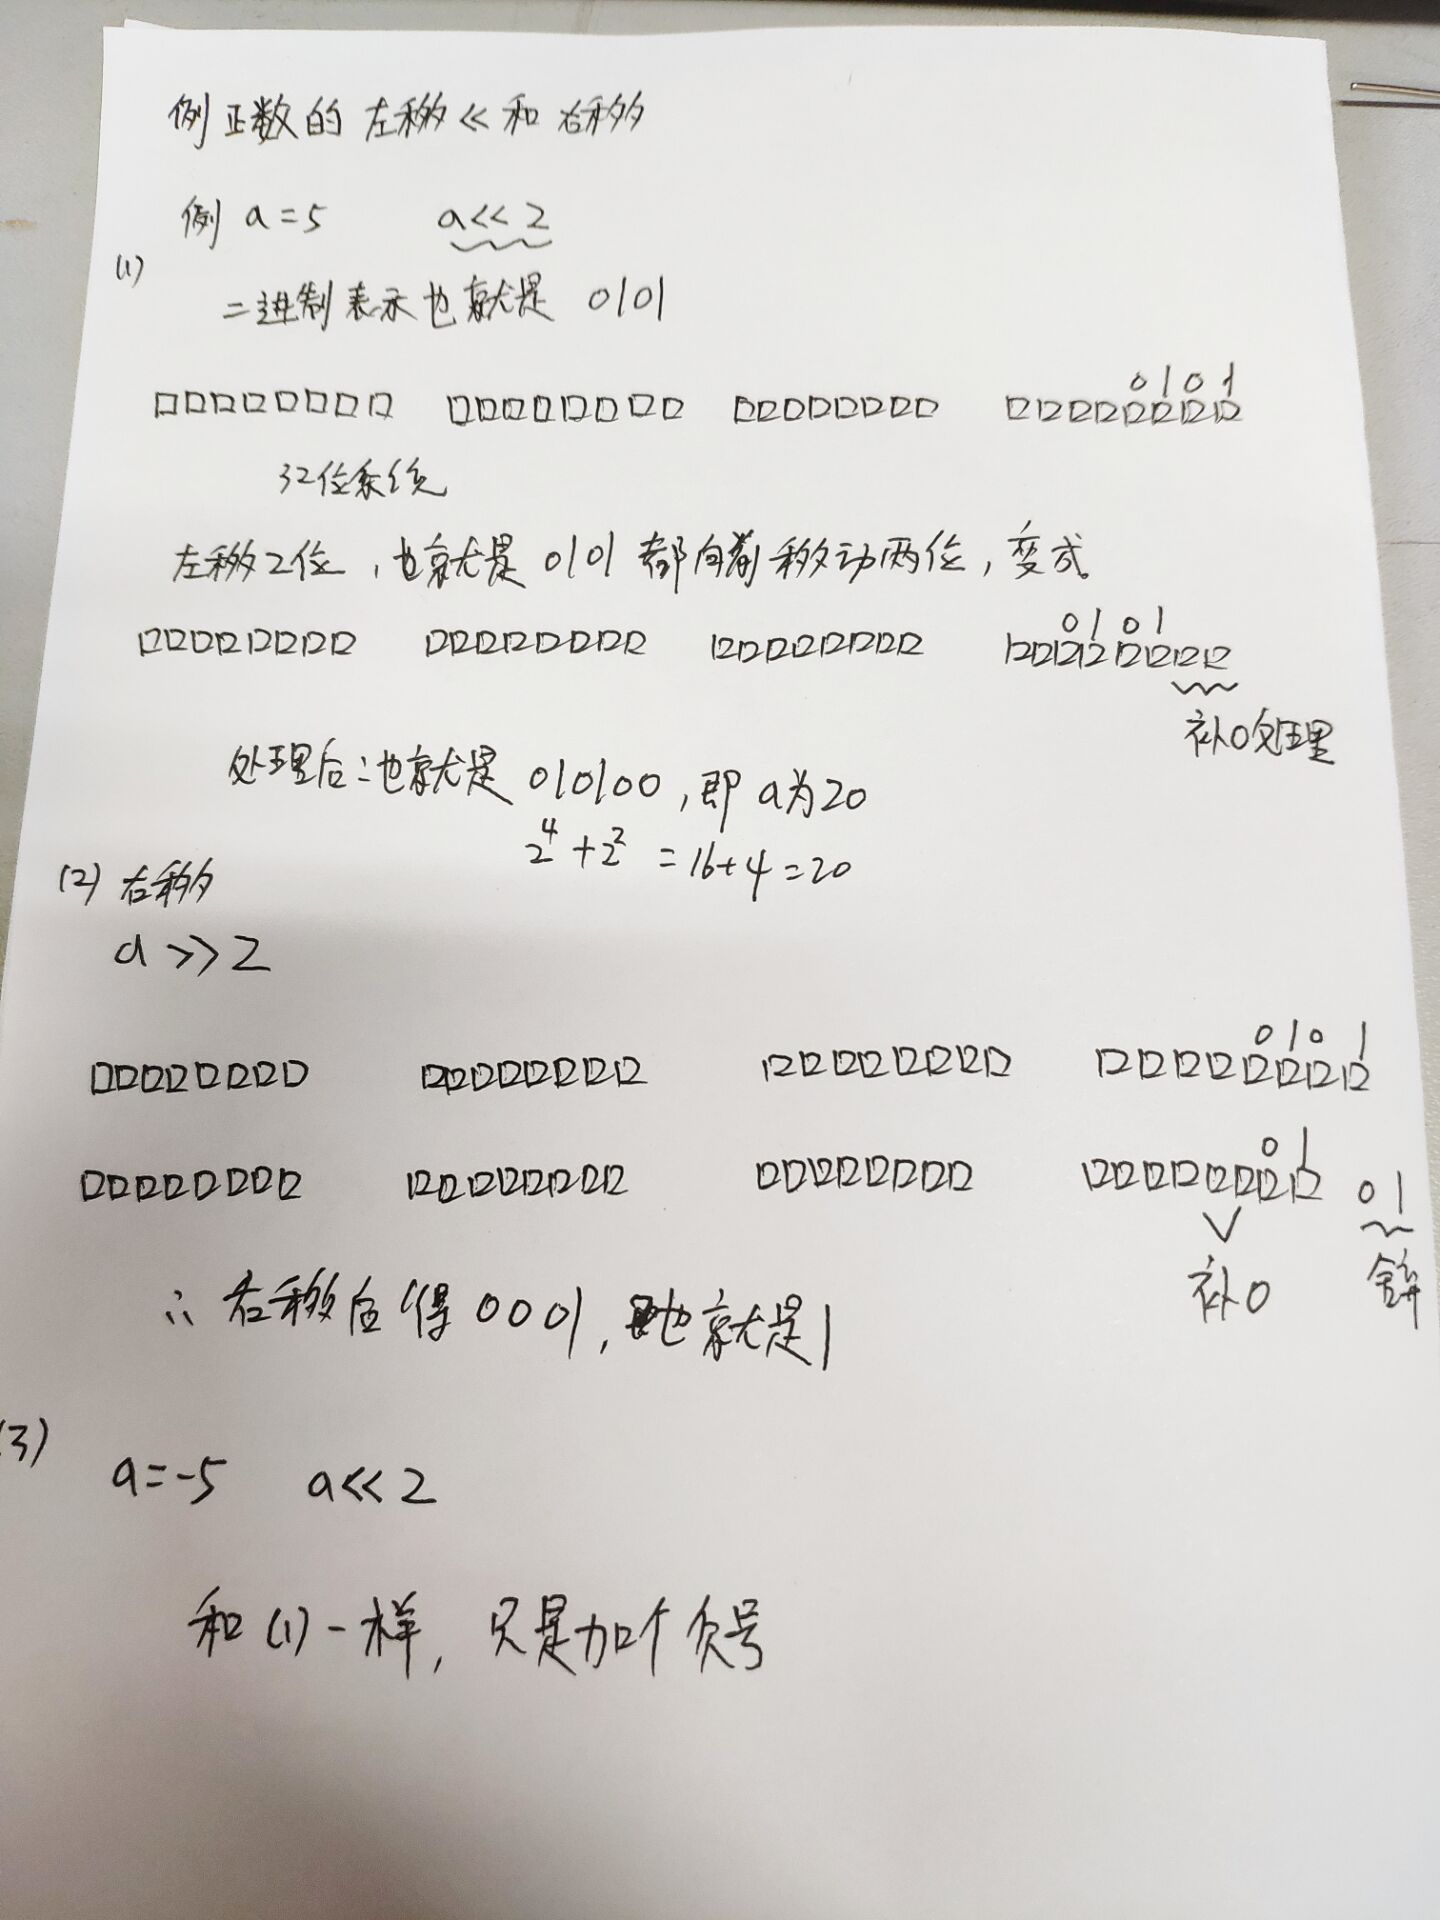 例正数的左移<<和右移
例 a=5 a<<2
(1)
二进制表示也就是 0101
0101
32位系统
左移2位，也就是0101都向前移动两位，变成
0101
补0处理
处理后：也就是010100，即a为20
2⁴+2²=16+4=20
(2) 右移
a>>2
0101
01 01
补0 舍弃
∴右移后得0001，也就是1
(3)
a=-5 a<<2
和(1)一样，只是加个负号